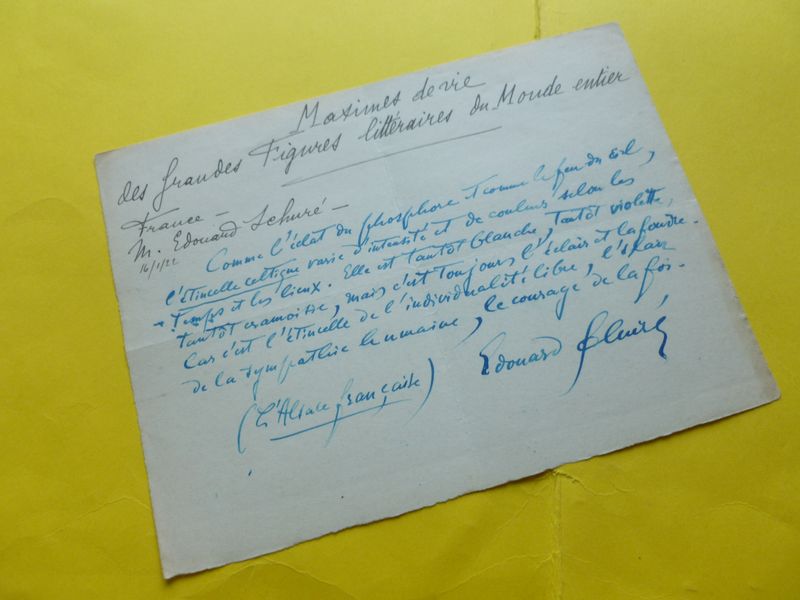 Maximes de vie
des Grandes Figures littéraires du Monde entier
France –
M. Edouard Schuré –
16/1/22
Comme l'éclat du phosphore et comme le feu du ciel,
l'étincelle celtique varie d'intensité et de couleurs selon les
temps et les lieux. Elle est tantôt blanche, tantôt violette,
tantôt cramoisie, mais c'est toujours l'éclair et la foudre.
Car c'est l'étincelle de l'individualité libre, l'éclair
de la sympathie humaine, le courage de la foi.
Edouard Schuré
(L'Alsace française)